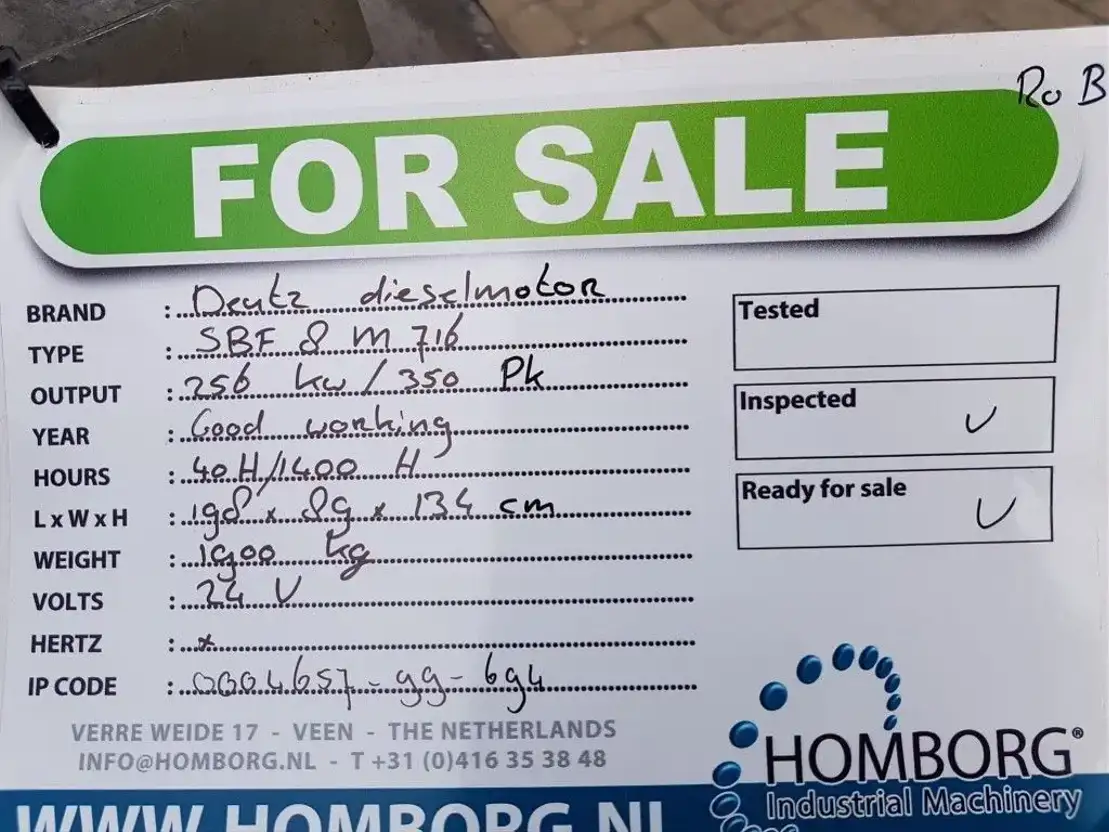 Ro B
FOR SALE
BRAND : Deutz dieselmotor
TYPE : SBF 8 M 716
OUTPUT : 256 kw / 350 Pk
YEAR : Good working
HOURS : 40 H/1400 H
L x W x H : 198 x 89 x 134 cm
WEIGHT : 1900 kg
VOLTS : 24 V
HERTZ : x
IP CODE : 0004657-99-694
Tested
Inspected V
Ready for sale V
VERRE WEIDE 17 - VEEN - THE NETHERLANDS
INFO@HOMBORG.NL - T +31 (0)416 35 38 48
HOMBORG®
Industrial Machinery
WWW.HOMBORG.NL